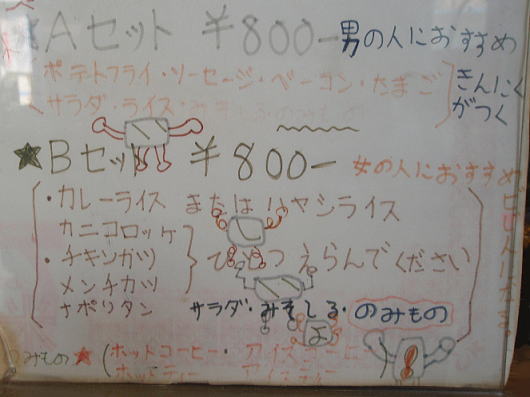 Aセット ￥800- 男の人におすすめ
ポテトフライ・ソーセージ・ベーコン・たまご
サラダ・ライス・みそしる・のみもの
きんにく
がつく
★Bセット ￥800- 女の人におすすめ
・カレーライス またはハヤシライス
カニコロッケ
・チキンカツ
メンチカツ
ナポリタン
ひとつ えらんでください
サラダ・みそしる・のみもの
のみもの★(ホットコーヒー・アイスコーヒー
ホットティー アイスティー